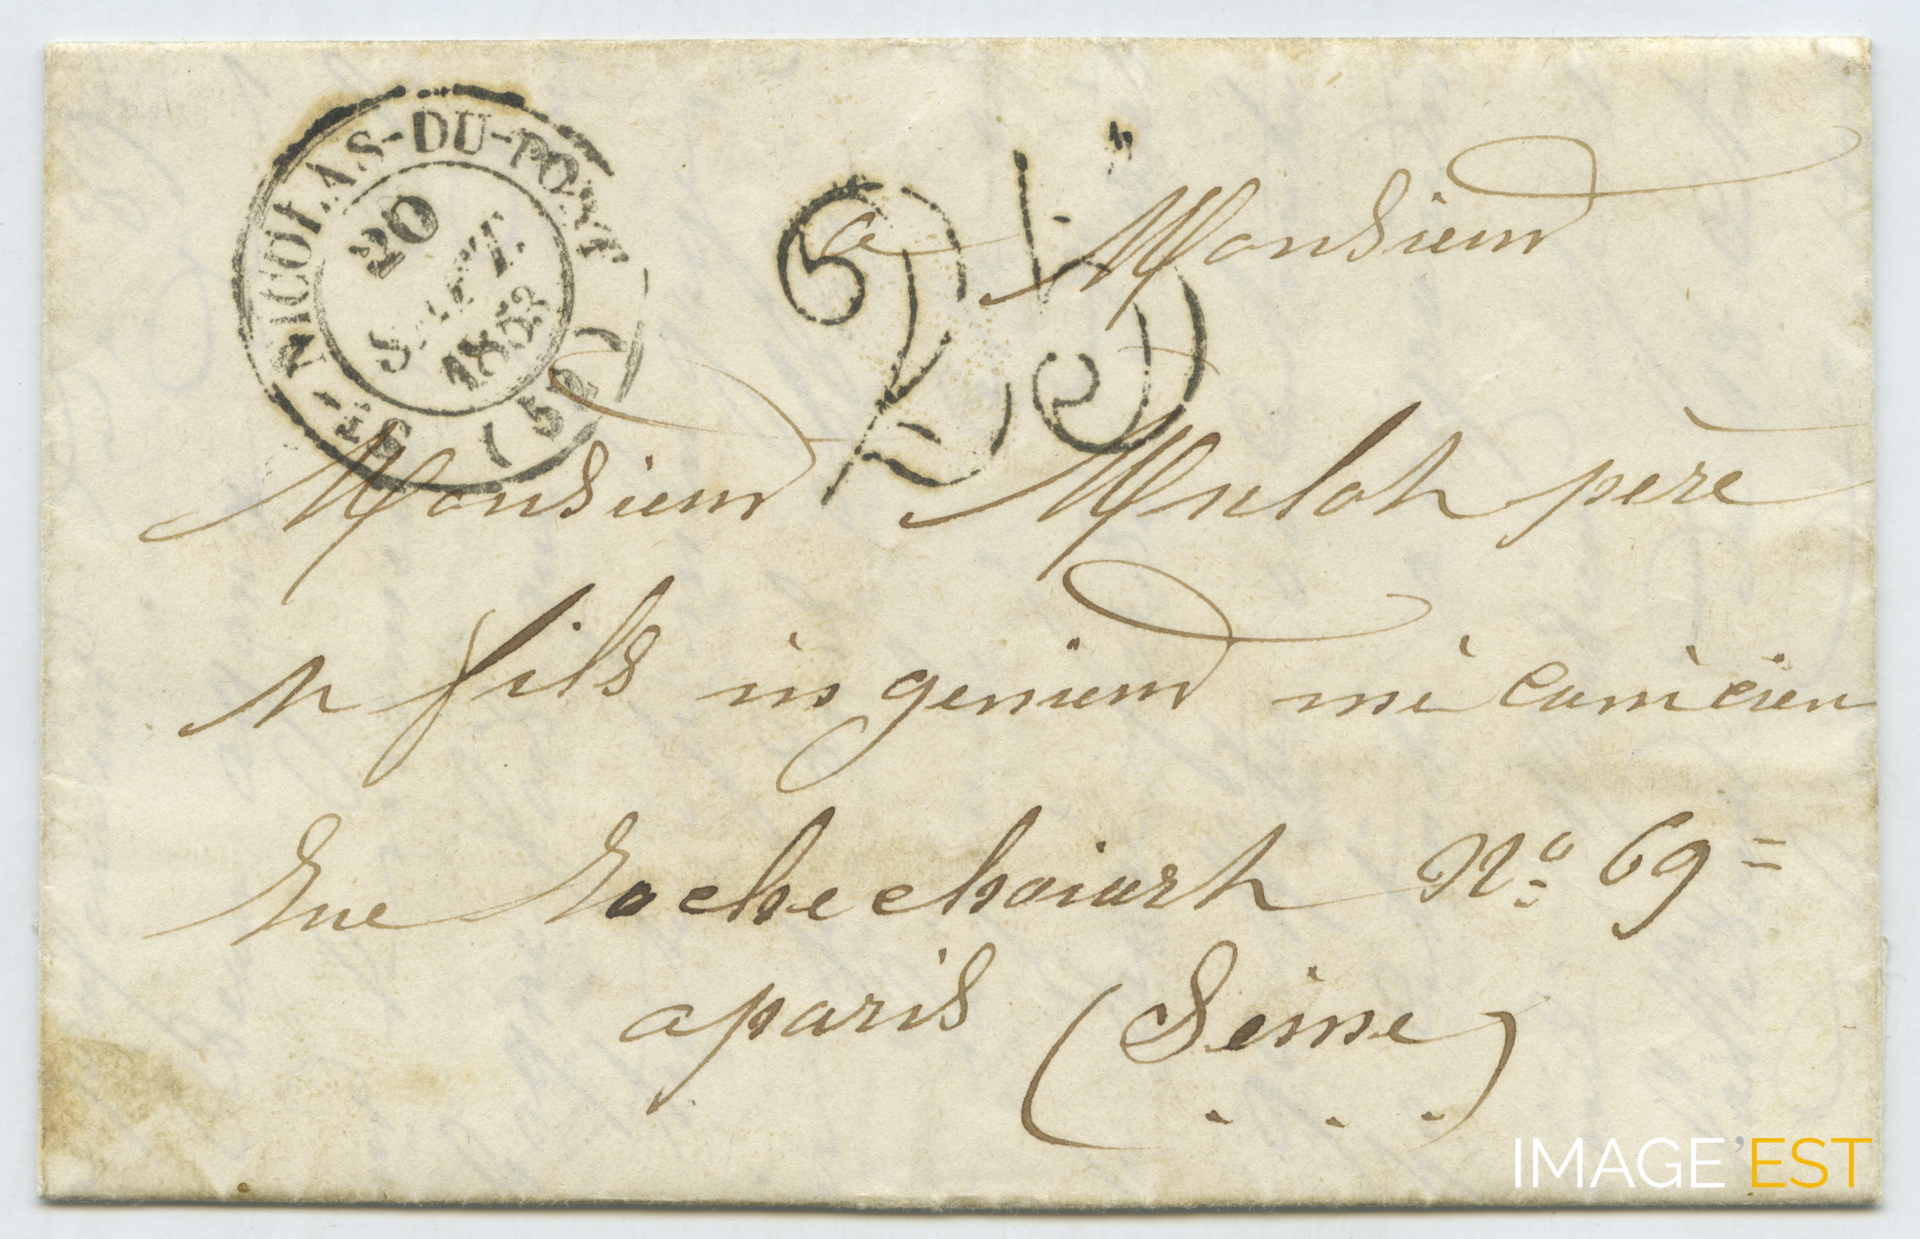 ST-NICOLAS-DU-PORT (52)
20
SEPT.
1853
25
a Monsieur
Monsieur Mulot père
et fils ingenieur mécanicien
Rue Rochechouart No. 69=
a paris (Seine)
IMAGE'EST